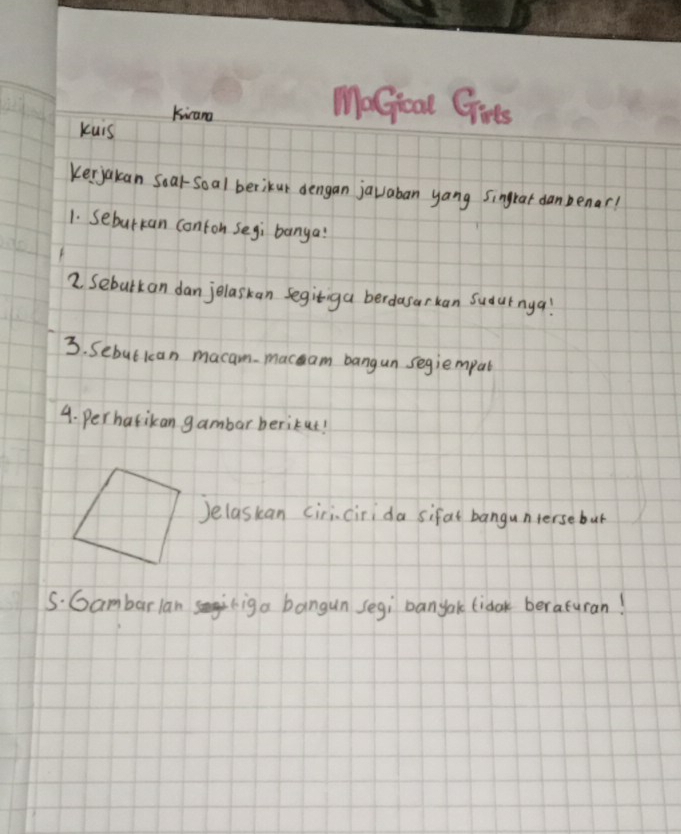 MaGical Girls
Kirana
Kuis
Kerjakan soal-soal berikut dengan jawaban yang singkat dan benar!
1. Sebutkan contoh segi banya!
2. Sebutkan dan jelaskan segitiga berdasarkan sudutnya!
3. Sebutkan macam-macam bangun segiempat
4. perhatikan gambar berikut!
jelaskan ciri-ciri da sifat bangun tersebut
5. Gambarlan tiga bangun segi banyak tidak beraturan!